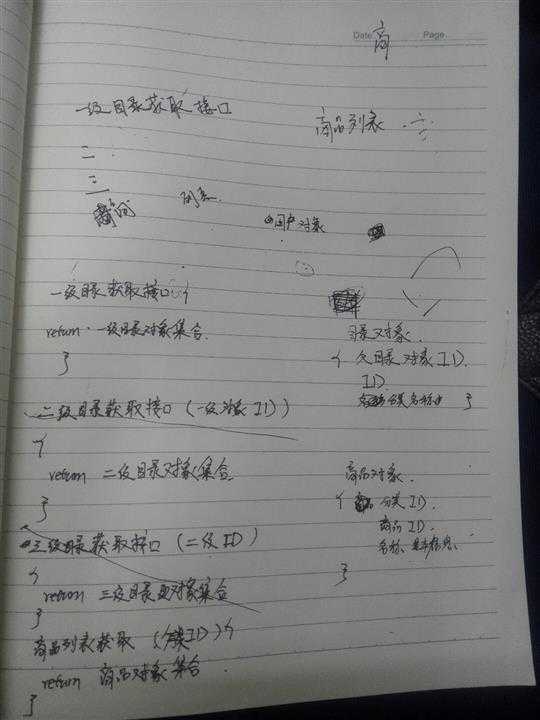 Date 商 Page
一级目录获取接口
商品列表
二
三
用户对象
一级目录获取接口{
return 一级目录对象集合
}
目录对象
{ 父目录对象ID
ID
分类名称 }
二级目录获取接口（一级对象ID）
{
return 二级目录对象集合
}
商品对象
{ 分类ID
商品ID
名称、基本信息、
}
三级目录获取接口（二级ID）
{
return 三级目录对象集合
}
商品列表获取（分类ID）{
return 商品对象集合
}